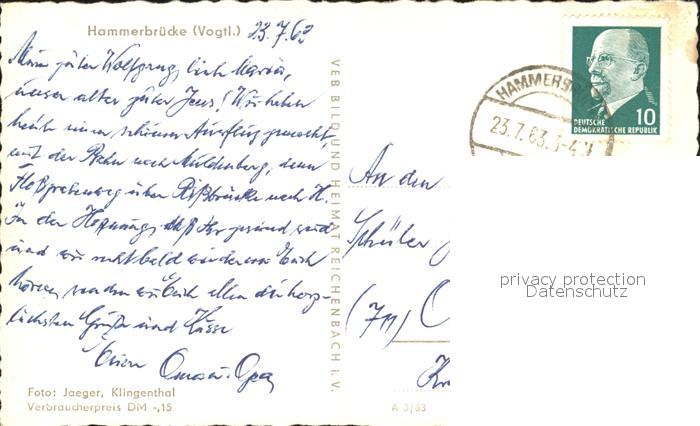 Hammerbrücke (Vogtl.) 23.7.63
Mein guter Wolfgang, liebe Maria,
unser alter guter Jens! Wir haben
heute einen schönen Ausflug gemacht,
mit der Bahn nach Muldenberg, dann
Floßgrabenweg über Rißbrücke nach H.
In der Hoffnung, daß Ihr gesund seid
und wir recht bald wieder von Euch
hören, senden wir Euch allen die herz-
lichsten Grüße und Küsse
Eure Oma u. Opa
Foto: Jaeger, Klingenthal
Verbraucherpreis DM -,15
VEB BILD UND HEIMAT REICHENBACH i. V.
A 3/63
HAMMERBR
23.7.63.
DEUTSCHE
DEMOKRATISCHE REPUBLIK
10
An den
Schüler
(7
privacy protection
Datenschutz